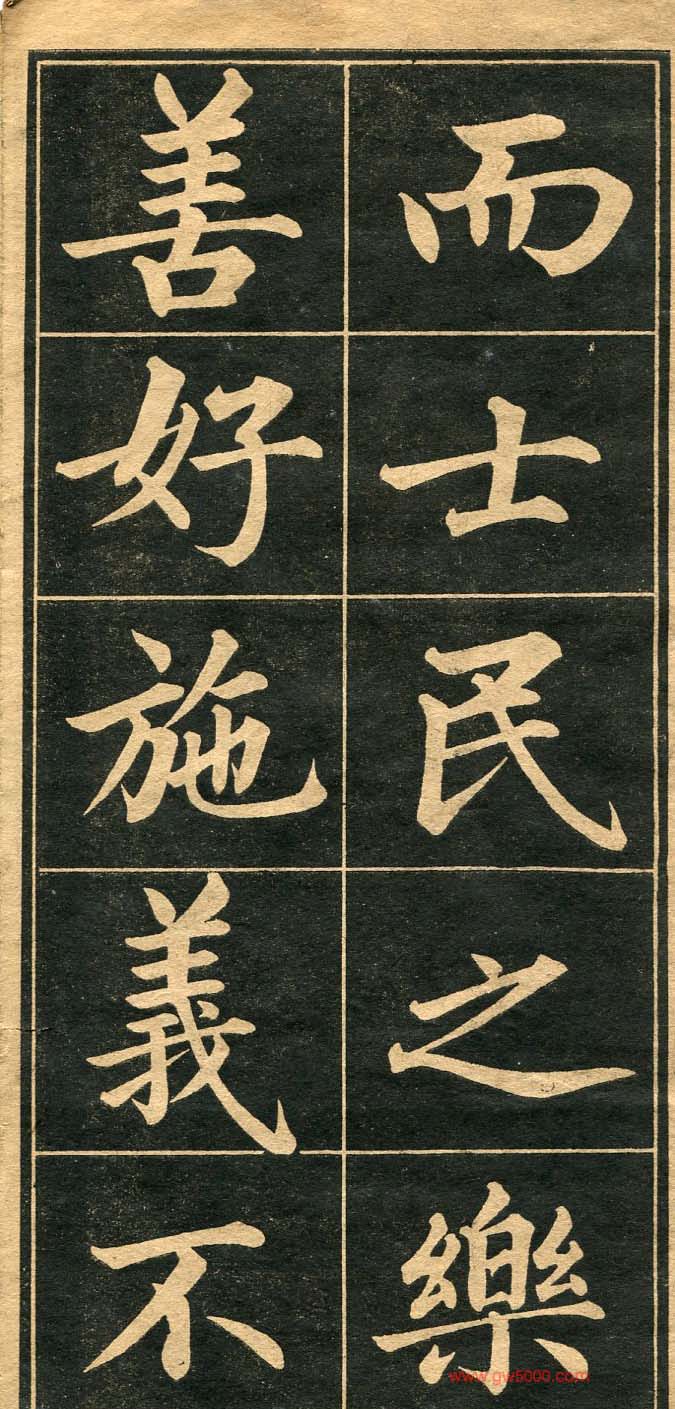 而士民之樂
善好施義不
www.gw5000.com